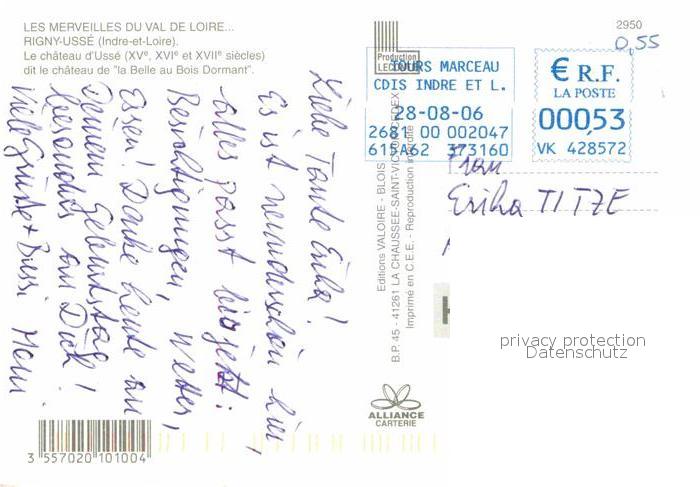 LES MERVEILLES DU VAL DE LOIRE...
RIGNY-USSÉ (Indre-et-Loire).
Le château d'Ussé (XVe, XVIe et XVIIe siècles)
dit le château de "la Belle au Bois Dormant".
2950
0,55
Production
LECONTE
TOURS MARCEAU
CDIS INDRE ET L.
28-08-06
2681 00 002047
615A62 373160
€ R.F.
LA POSTE
00053
VK 428572
Liebe Tante Erika!
Es ist wunderschön hier,
alles passt bis jetzt:
Besichtigungen, Wetter,
Essen! Danke heute an
Deinem Geburtstag
besonders an Dich!
Viele Grüße + Bussi
Frau
Erika TITZE
Editions VALOIRE - BLOIS
B.P. 45 - 41261 LA CHAUSSEE-SAINT-VICTOR CEDEX
Imprimé en C.E.E. - Reproduction interdite
privacy protection
Datenschutz
ALLIANCE
CARTERIE
3 557020 101004